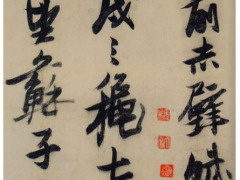 前赤壁賦
戌之穐七
望蘇子